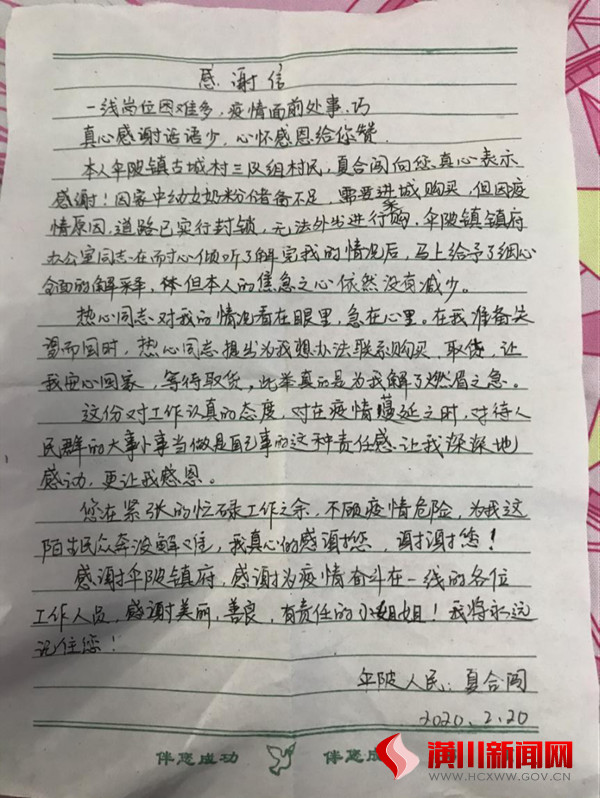 感谢信
一线岗位困难多，疫情面前处事巧
真心感谢话语少，心怀感恩给您赞
本人伞陂镇古城村三队组村民，夏合闯向您真心表示
感谢！因家中幼女奶粉储备不足，需要进城购买，但因疫
情原因，道路已实行封锁，无法外出进行采购，伞陂镇镇府
办公室同志在而寸心倾听了解完我的情况后，马上给予了细心
全面的解释，但本人的焦急之心依然没有减少。
热心同志对我的情况看在眼里，急在心里。在我准备失
望而回时，热心同志提出为我想办法联系购买，取货，让
我安心回家，等待取货，此举真的是为我解了燃眉之急。
这份对工作认真的态度，对在疫情蔓延之时，对待人
民群的大事小事当做是自己事的这种责任感让我深深地
感动，更让我感恩。
您在紧张的忙碌工作之余，不顾疫情危险，为我这
陌生民众奔波解难，我真心的感谢您，谢谢您！
感谢伞陂镇府，感谢为疫情奋斗在一线的各位
工作人员，感谢美丽，善良，有责任的小姐姐！我将永远
记住您！
伞陂人民：夏合闯
2020.2.20
伴您成功 伴您成
潢川新闻网
WWW.HCXWW.GOV.CN